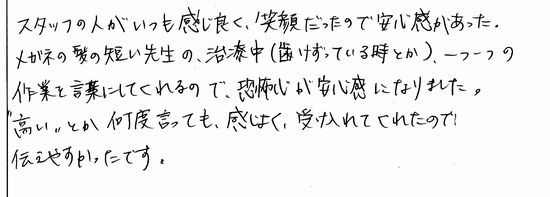 スタッフの人がいつも感じ良く、笑顔だったので安心感があった.
メガネの髪の短い先生の、治療中(歯けずっている時とか)、一つ一つの
作業を言葉にしてくれるので、恐怖心が安心感になりました。
"高い"とか何度言っても、感じよく、受け入れてくれたので
伝えやすかったです。